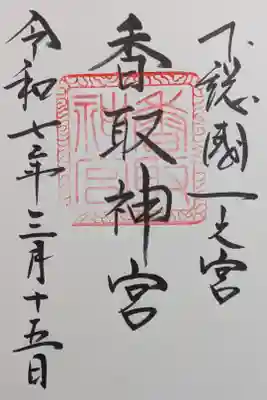 下総國一之宮
香取神宮
令和七年三月十五日